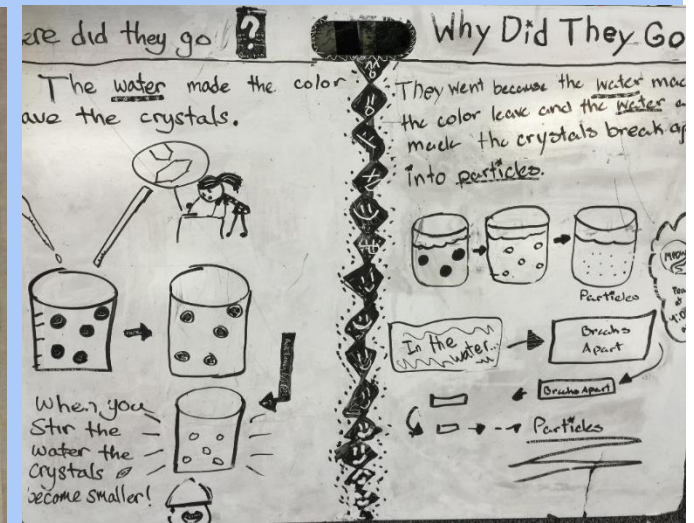 ere did they go ?
The water made the color
ave the crystals.
When you
Stir the
water the
crystals
become smaller!
Why Did They Go
They went because the water mad
the color leave and the water a
made the crystals break ap
into particles.
Particles
In the
water...
Breaks
Apart
Breaks Apart
Particles
MEOW